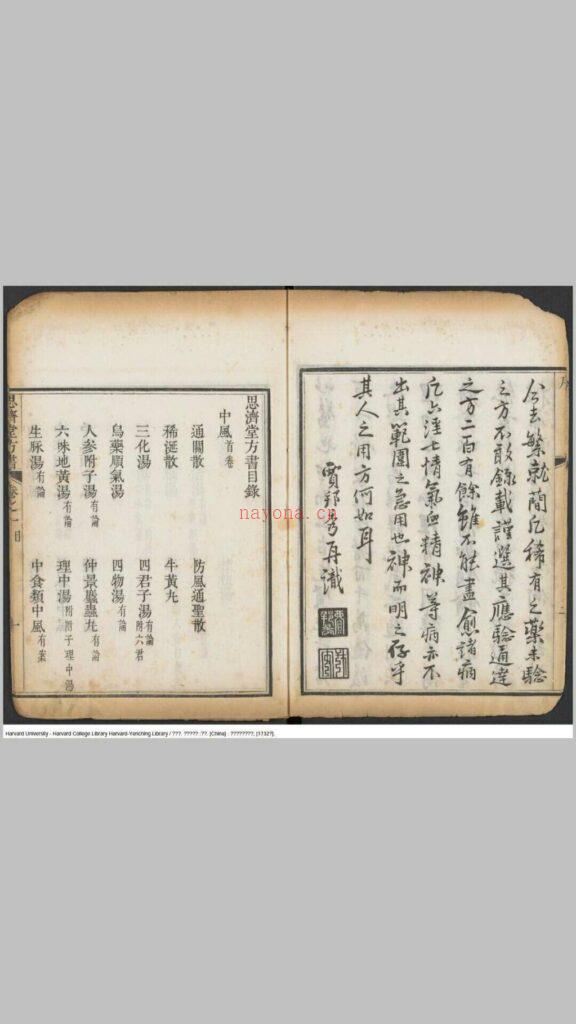 序
今去繁就簡凡稀有之藥未驗
之方不敢錄載謹選其應驗通達
之方二百有餘雖不能盡愈諸病
凡六淫七情氣血精神等病亦不
出其範圍之急用也神而明之存乎
其人之用方何如耳
賈邦秀再識
二
思濟堂方書目錄
中風首卷
通關散 防風通聖散
稀涎散 牛黃丸
三化湯 四君子湯有論附六君
烏藥順氣湯 四物湯有論
人參附子湯有論 仲景蟲丸有論
六味地黃湯有論 理中湯附附子理中湯
生脉湯有論 中食類中風有案
思濟堂方書 卷之一目 一
nayona.cn
Harvard University - Harvard College Library Harvard-Yenching Library / ???. ????? :??. [China] : ????????, [1732?].